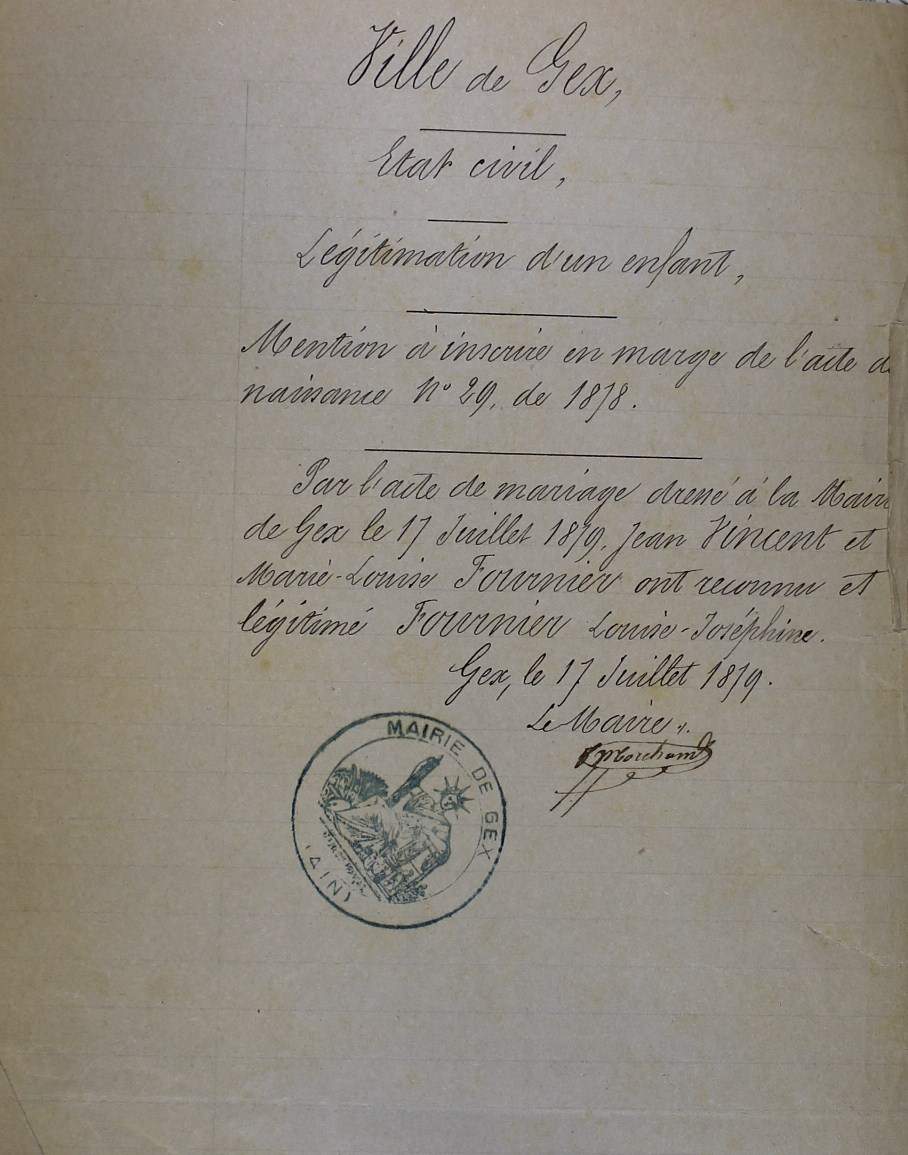 Ville de Gex,
Etat civil,
Légitimation d'un enfant,
Mention à inscrire en marge de l'acte de
naissance No 29, de 1878.
Par l'acte de mariage dressé à la Mairie
de Gex le 17 Juillet 1879, Jean Vincent et
Marie-Louise Fournier ont reconnu et
légitimé Fournier Louise-Joséphine.
Gex, le 17 Juillet 1879.
Le Maire,
MAIRIE DE GEX
(AIN)